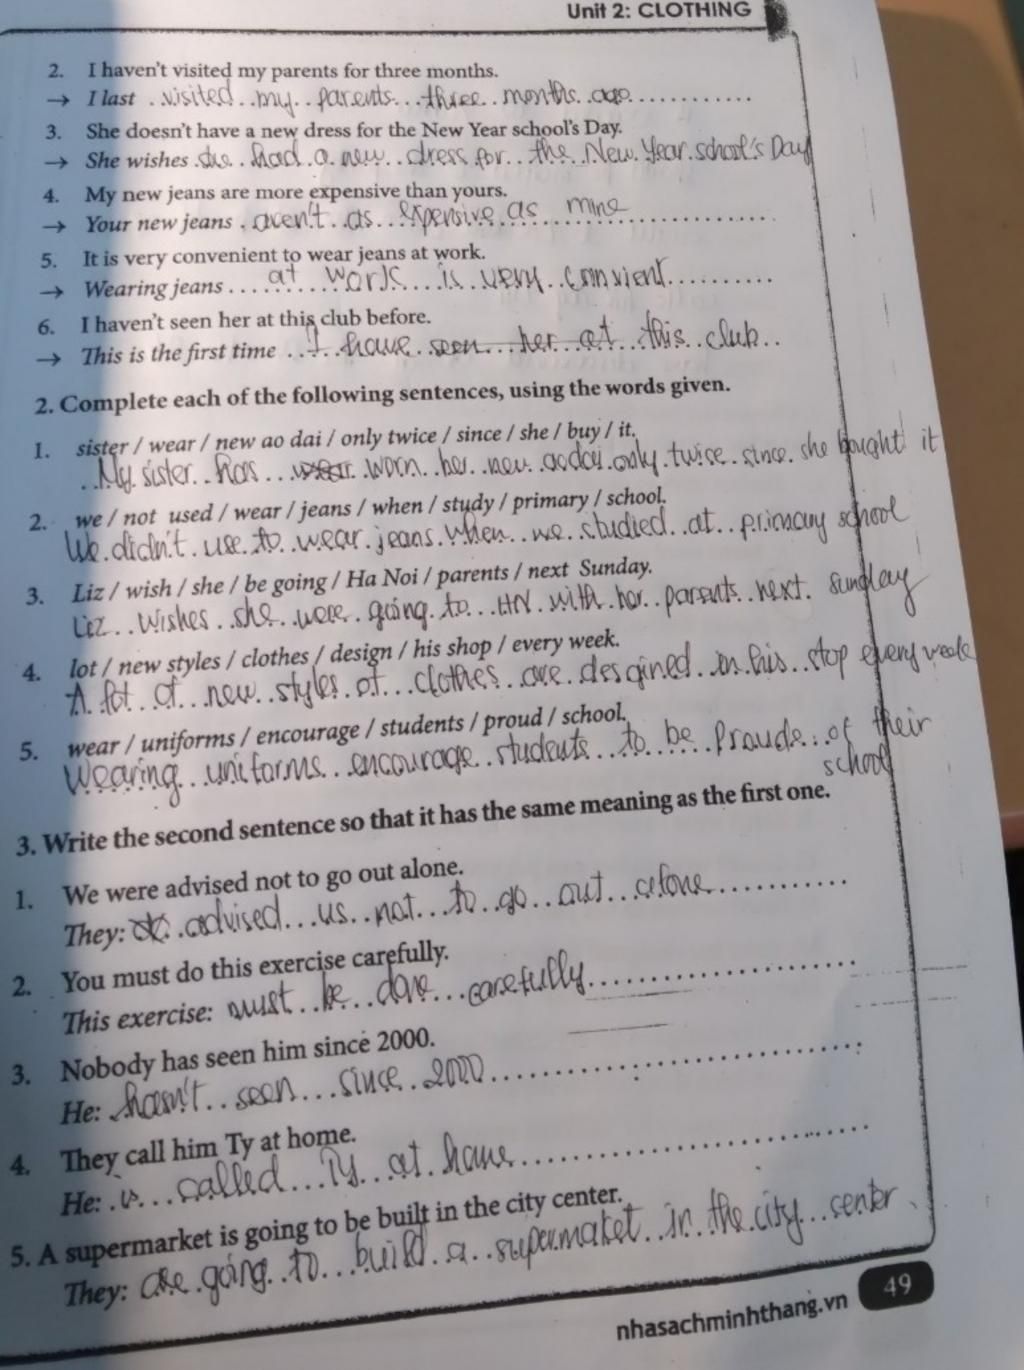 Unit 2: CLOTHING
2. I haven't visited my parents for three months.
→ I last visited my parents three months ago
3. She doesn't have a new dress for the New Year school's Day.
→ She wishes she had a new dress for the New Year school's Day
4. My new jeans are more expensive than yours.
→ Your new jeans aren't as expensive as mine
5. It is very convenient to wear jeans at work.
→ Wearing jeans at work is very convient
6. I haven't seen her at this club before.
→ This is the first time I have seen her at this club
2. Complete each of the following sentences, using the words given.
1. sister / wear / new ao dai / only twice / since / she / buy / it.
My sister has worn her new aodai only twice since she bought it
2. we / not used / wear / jeans / when / study / primary / school.
We didn't use to wear jeans when we studied at primary school
3. Liz / wish / she / be going / Ha Noi / parents / next Sunday.
Liz wishes she were going to HN with her parents next sunday
4. lot / new styles / clothes / design / his shop / every week.
A lot of new styles of clothes are desgined in his stop every week
5. wear / uniforms / encourage / students / proud / school.
Wearing uniforms encourage students to be Proude of their
school
3. Write the second sentence so that it has the same meaning as the first one.
1. We were advised not to go out alone.
They: advised us not to go out alone
2. You must do this exercise carefully.
This exercise: must be done carefully
3. Nobody has seen him since 2000.
He: hasn't seen since 2000
4. They call him Ty at home.
He: is called Ty at home
5. A supermarket is going to be built in the city center.
They: are going to build a supermaket in the city senter
nhasachminhthang.vn 49